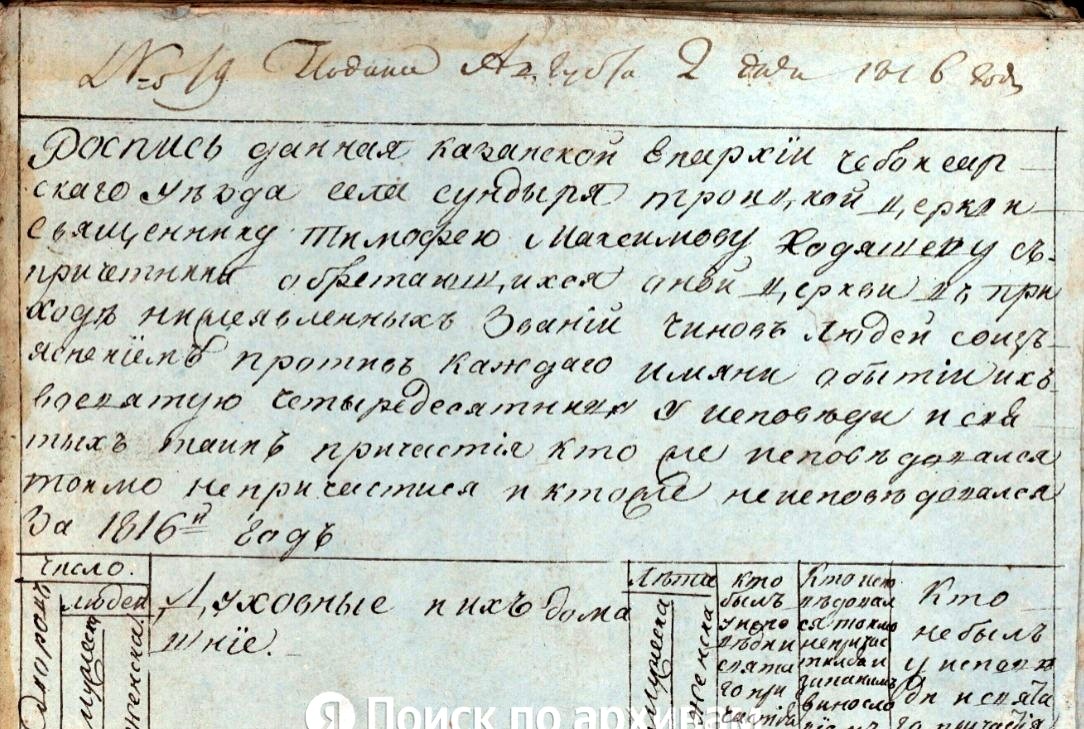 № 19 Подана Августа 2 дня 1816 года
Роспись данная казанской Епархіи чебоксар
скаго уѣзда села сундыря троицкой церкви
священнику тимофею Максимову Ходяшеву съ
причетники обретающихся оной церкви въ при
ходѣ нижеявленныхъ Званій чиновъ людей соизъ
ясненіемъ противъ каждаго имяни обытіи ихъ
восвятую четыредесятницу у исповѣди и свя
тыхъ таинъ причастія кто же исповѣдовался
токмо непричастися и ктоже неисповѣдовался
За 1816й годъ
Число.
людей
дворовъ
мужеска
женска
Духовные и ихъ дома
шніе.
Лѣта
мужеска
женска
кто
былъ
у испо
вѣди и
свята
го при
частія
Кто испо
вѣдовал
ся токмо
непричас
тился и
зачѣмъ
виносло
Кто
не былъ
у исповѣ
ди и свята
го причастія
Я Поиск по архивам